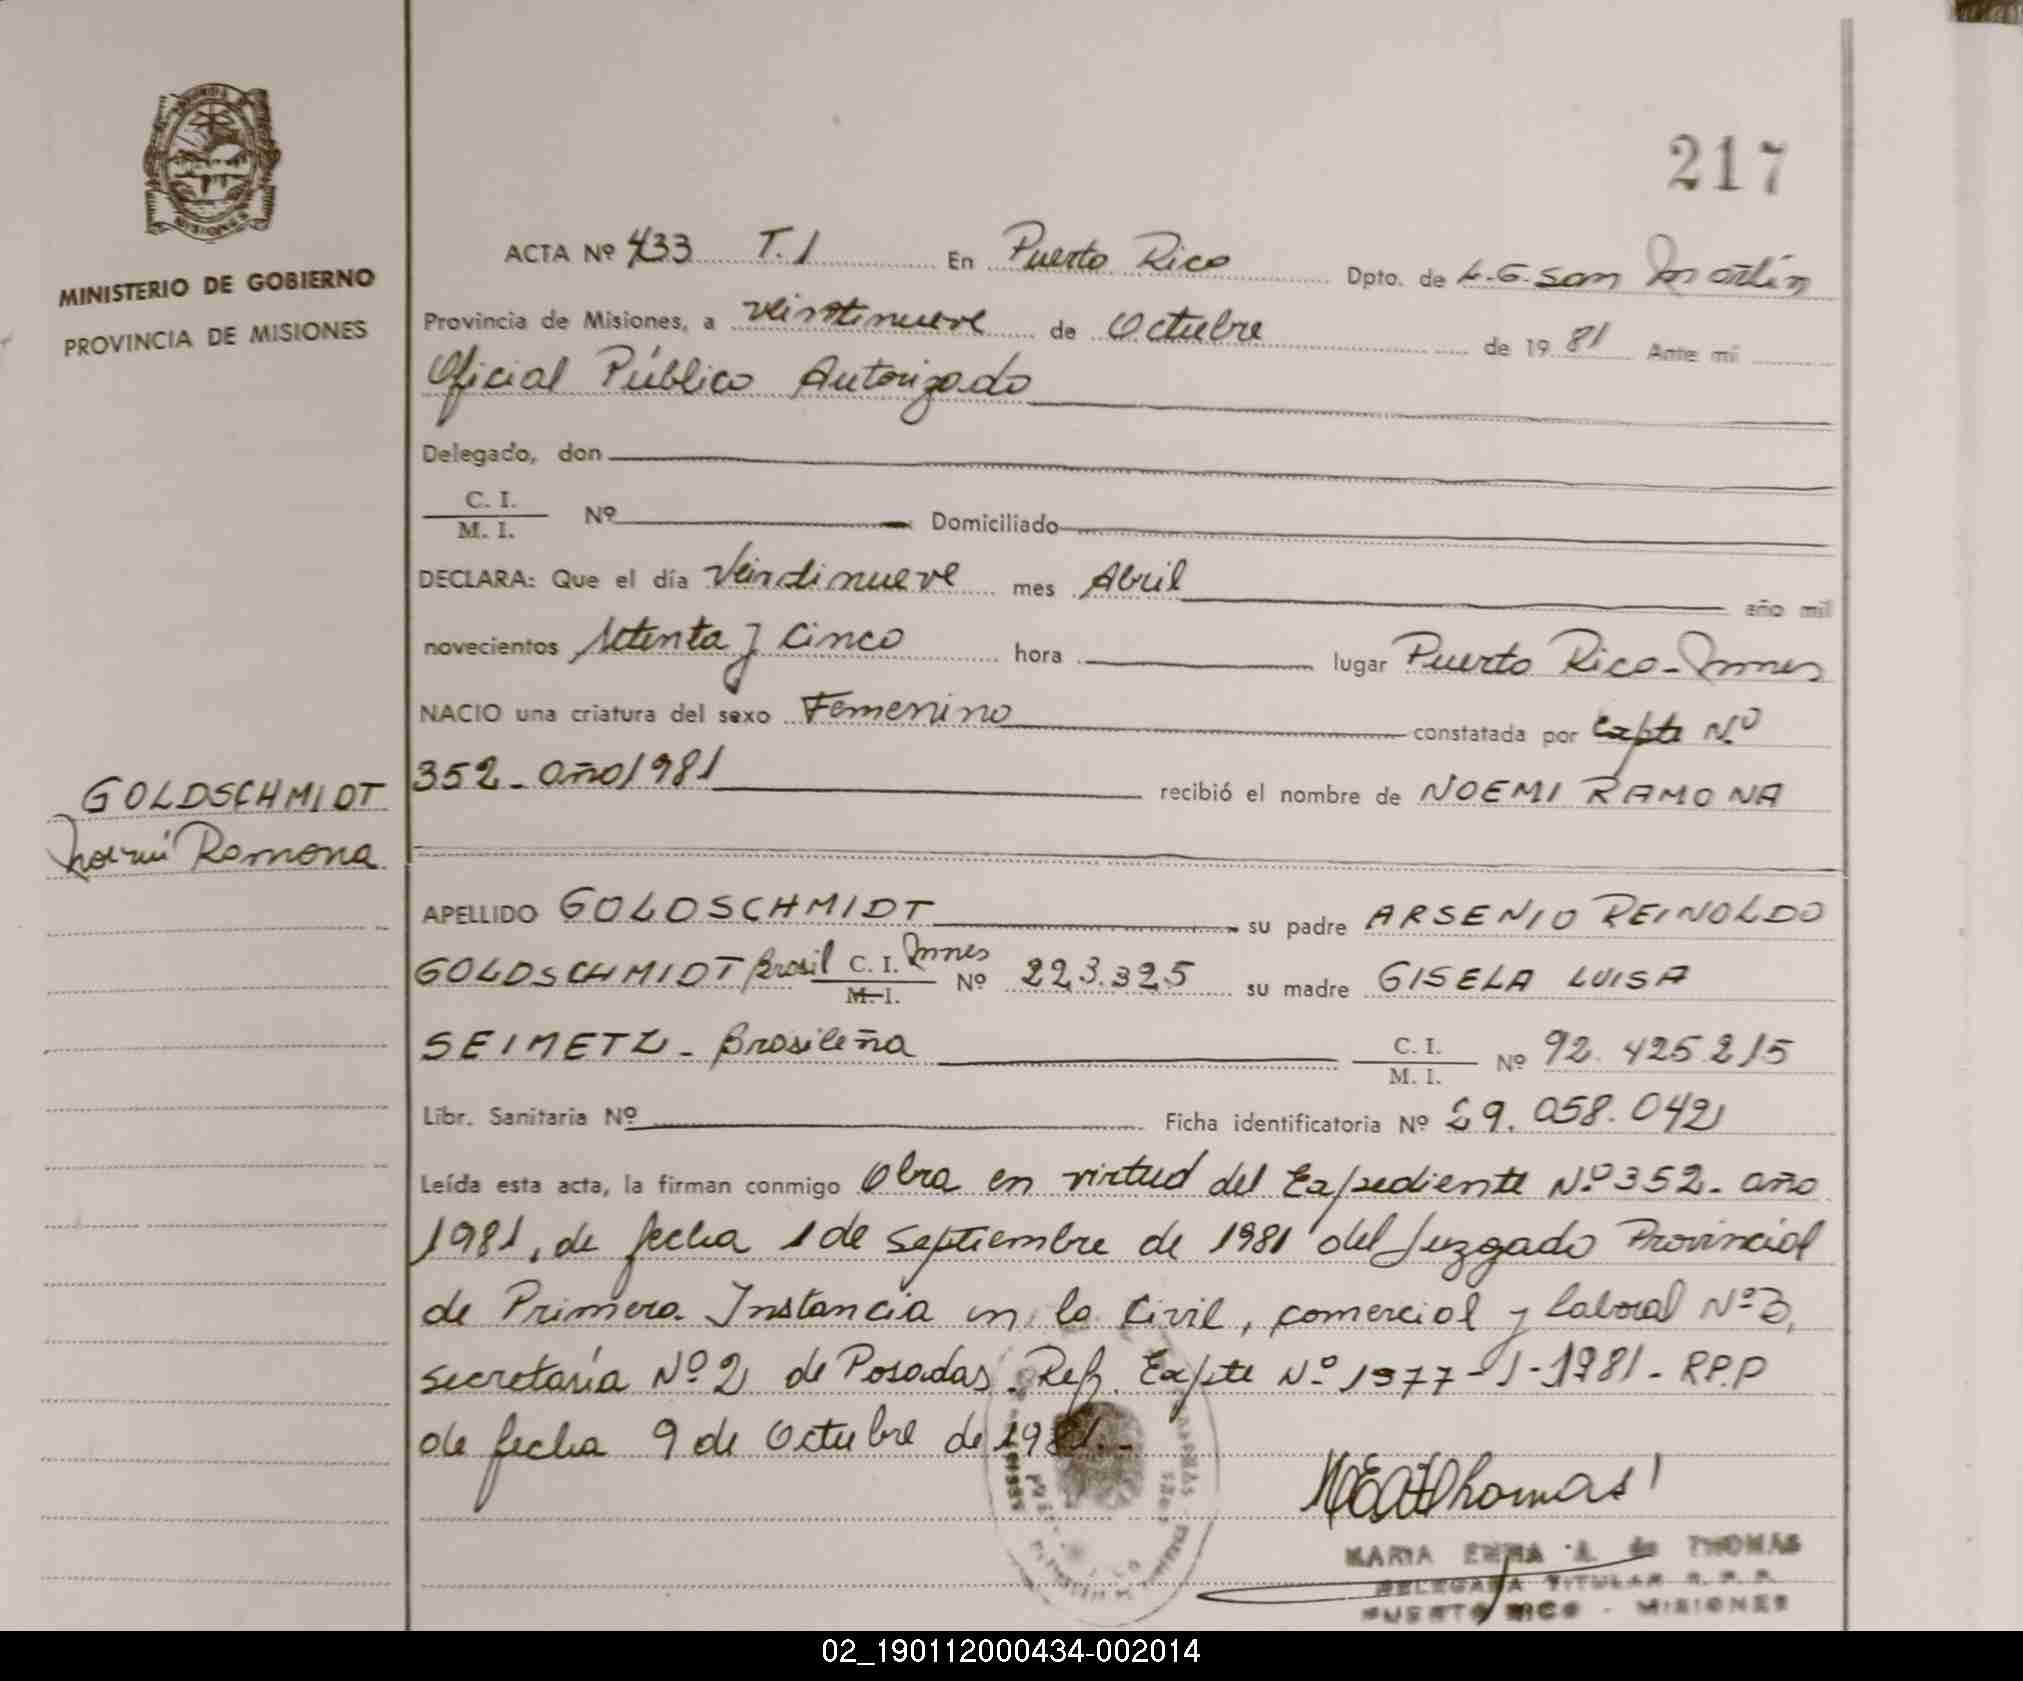 217
MINISTERIO DE GOBIERNO
PROVINCIA DE MISIONES
ACTA Nº 433 T.1 En Puerto Rico Dpto. de L.G. San Martín
Provincia de Misiones, a veintinueve de Octubre de 1981 Ante mi
Oficial Público Autorizado
Delegado, don
C. I.
M. I.
Nº Domiciliado
DECLARA: Que el día Veintinueve mes Abril año mil
novecientos setenta y cinco hora lugar Puerto Rico - Mnes
NACIO una criatura del sexo Femenino constatada por Expte Nº
352 - año 1981 recibió el nombre de NOEMI RAMONA
GOLDSCHMIDT
Noemí Ramona
APELLIDO GOLDSCHMIDT su padre ARSENIO REINOLDO
GOLDSCHMIDT Brasil C. I. Mnes
M. I.
Nº 223.325 su madre GISELA LUISA
SEIMETZ - Brasileña C. I.
M. I.
Nº 92.425.215
Libr. Sanitaria Nº Ficha identificatoria Nº 29.058.042
Leída esta acta, la firman conmigo Obra en virtud del Expediente Nº 352 - año
1981, de fecha 1 de Septiembre de 1981 del Juzgado Provincial
de Primera Instancia en lo Civil, comercial y laboral Nº 3,
secretaría Nº 2 de Posadas. Ref. Expte Nº 1977-J-1981 - R.P.P
de fecha 9 de Octubre de 1981.-
Thomas
MARIA EMMA A. de THOMAS
DELEGADA TITULAR R. P. P.
PUERTO RICO - MISIONES
02_190112000434-002014